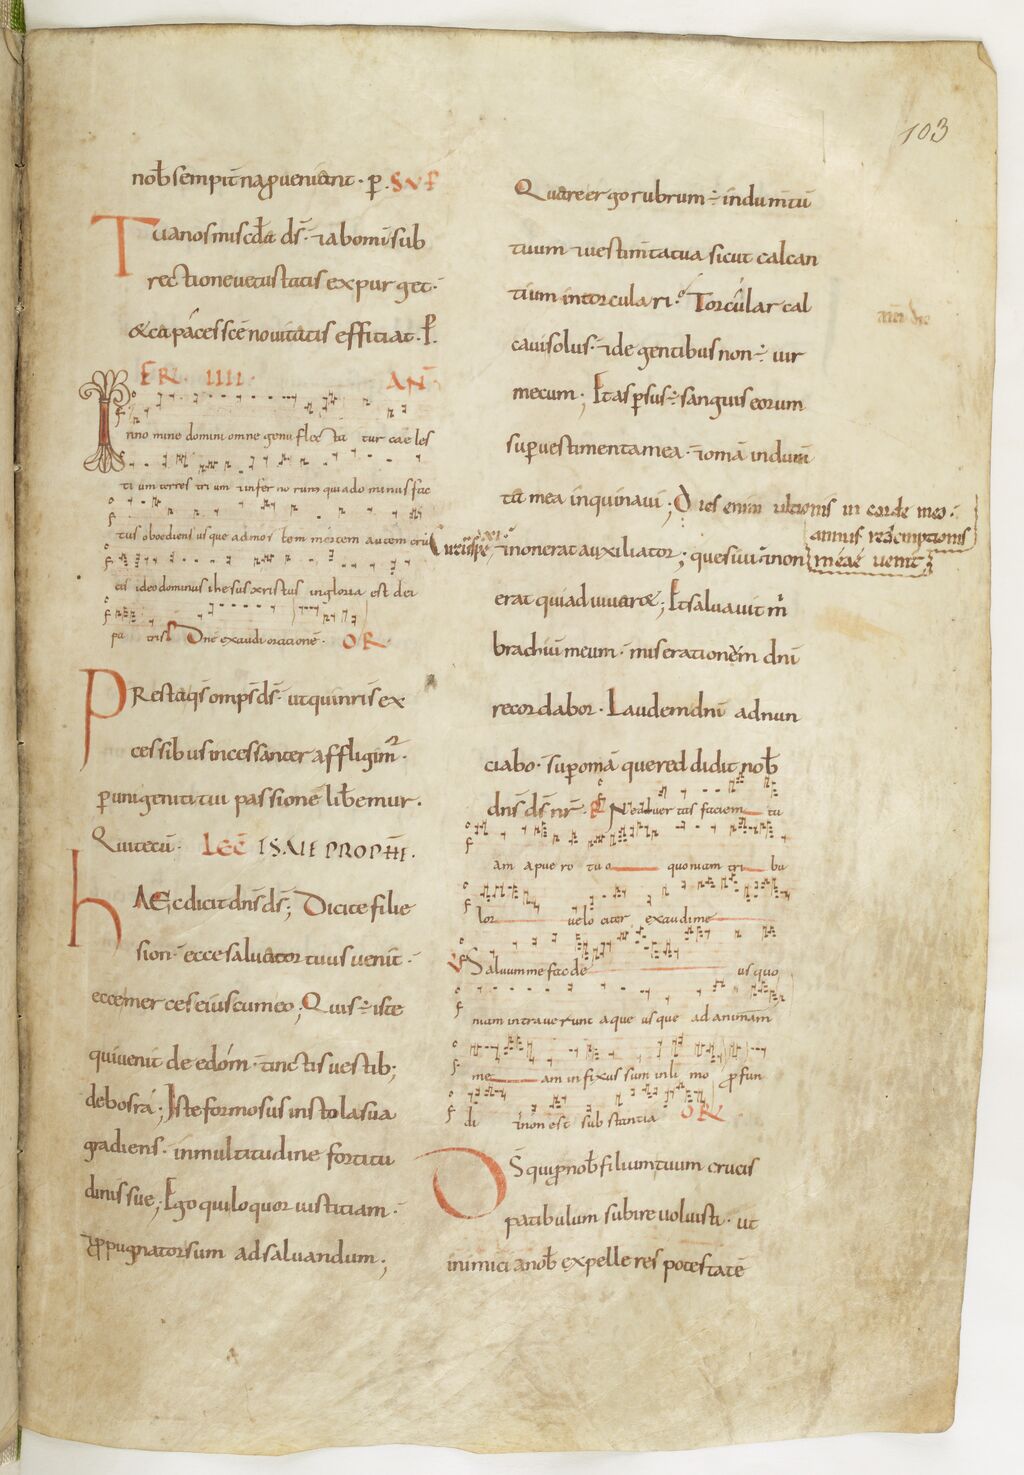 103
nob sempitna pveniant · p · SVP
Tua nos miscda ds · & ab omi sub
rectione uetustatis expurget ·
& capaces sce nouitatis efficiat · P
FR · IIII · AN
In no mine domini omne genu flec ta tur cae les
ti um terres tri um & infer no rum quia do minus fac
tus oboediens us que ad mor tem mortem autem cru
cis ideo dominus ihesus xristus in gloria est dei
pa tris Dne exaudi oratione · OR
Presta qs omps ds · ut qui nris ex
cessibus incessanter affligimr ·
p unigeniti tui passione libemur ·
Qui tecu · LEC ISAIE PROPHE ·
hAEc dicit dns ds ; Dicite filie
sion · ecce saluator tuus uenit ·
ecce merces eius cum eo ; Quis ÷ iste
qui uenit de edom · tinctis uestib ;
de bosra ; Iste formosus in stola sua
gradiens · in multitudine fortitu
dinis sue ; Ego qui loquor iustitiam ·
& ppugnator sum ad saluandum ;
Quare ergo rubrum ÷ indumtu
tuum & uestimta tua sicut calcan
tium in torculari · Torcular cal
caui solus · & de gentibus non ÷ uir
mecum ; Et aspsus ÷ sanguis eorum
sup uestimenta mea · & oma indum
ta mea inquinaui ; Dies enim ultionis in corde meo ·
annus redemptionis
meae uenit
& non erat auxiliator ; quesiui & non
erat qui adiuuaret ; Et saluauit m
brachiu meum · miserationem dni
recordabor · Laudem dni adnun
ciabo · sup oma que reddidit nob
dns ds nr · Ne aduer tas faciem tu
am a pue ro tu o quoniam tri bu
lor uelo citer exaudi me
V Saluum me fac de us quo
niam intrauerunt aque us que ad animam
me am in fixus sum in li mo profun
di & non est sub stantia OR
Ds qui p nob filium tuum crucis
patibulum subire uoluisti · ut
inimici a nob expelleres potestate